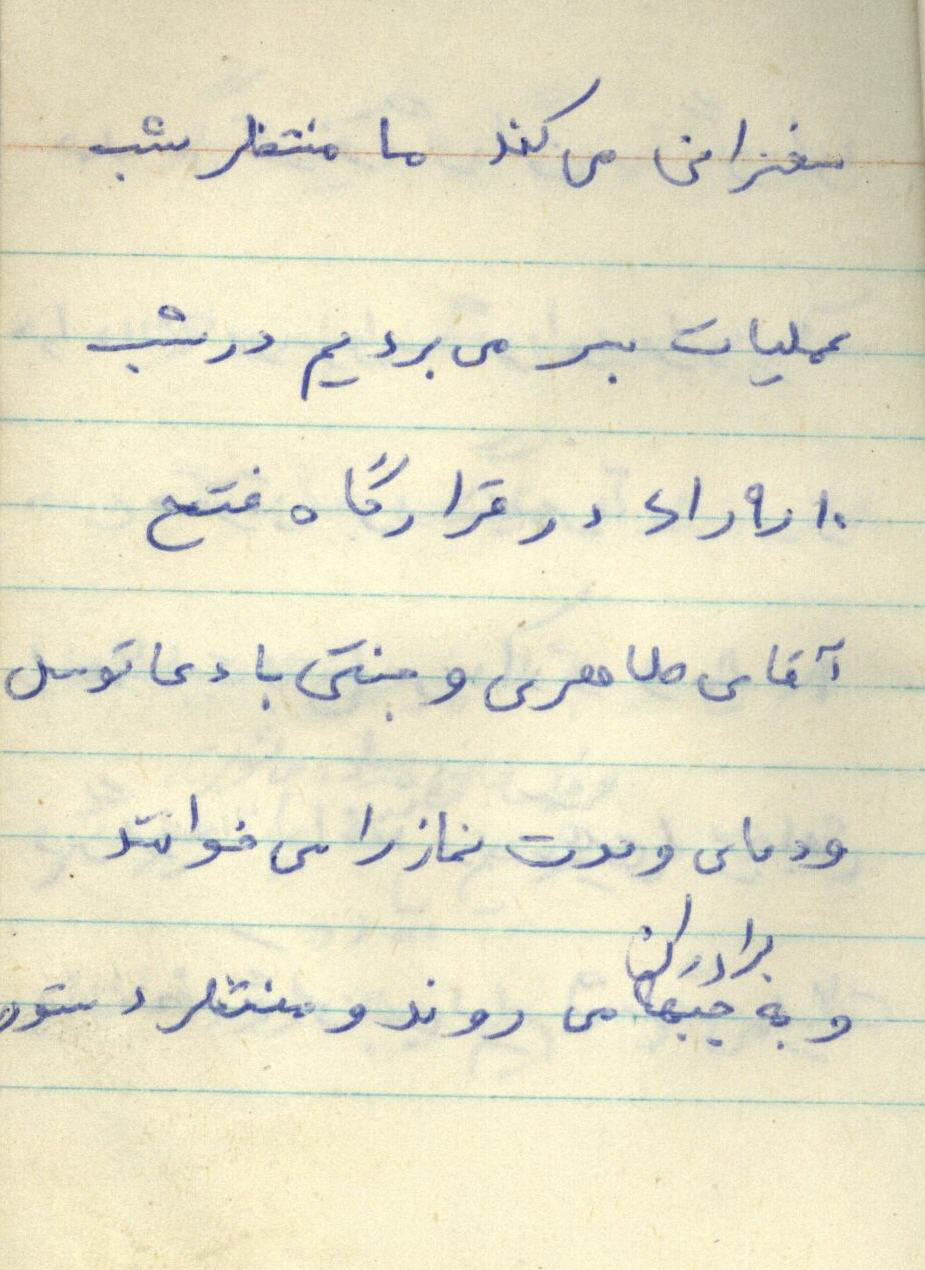 سخنرانی می کند ما منتظر شب
عملیات بسر می بردیم در شب
در قرارگاه فتح
آقای طاهری و جنتی با دعا توسل
و دعای وحدت نماز را می خوانند
برادران
و به جبهها می روند و منتظر دستور